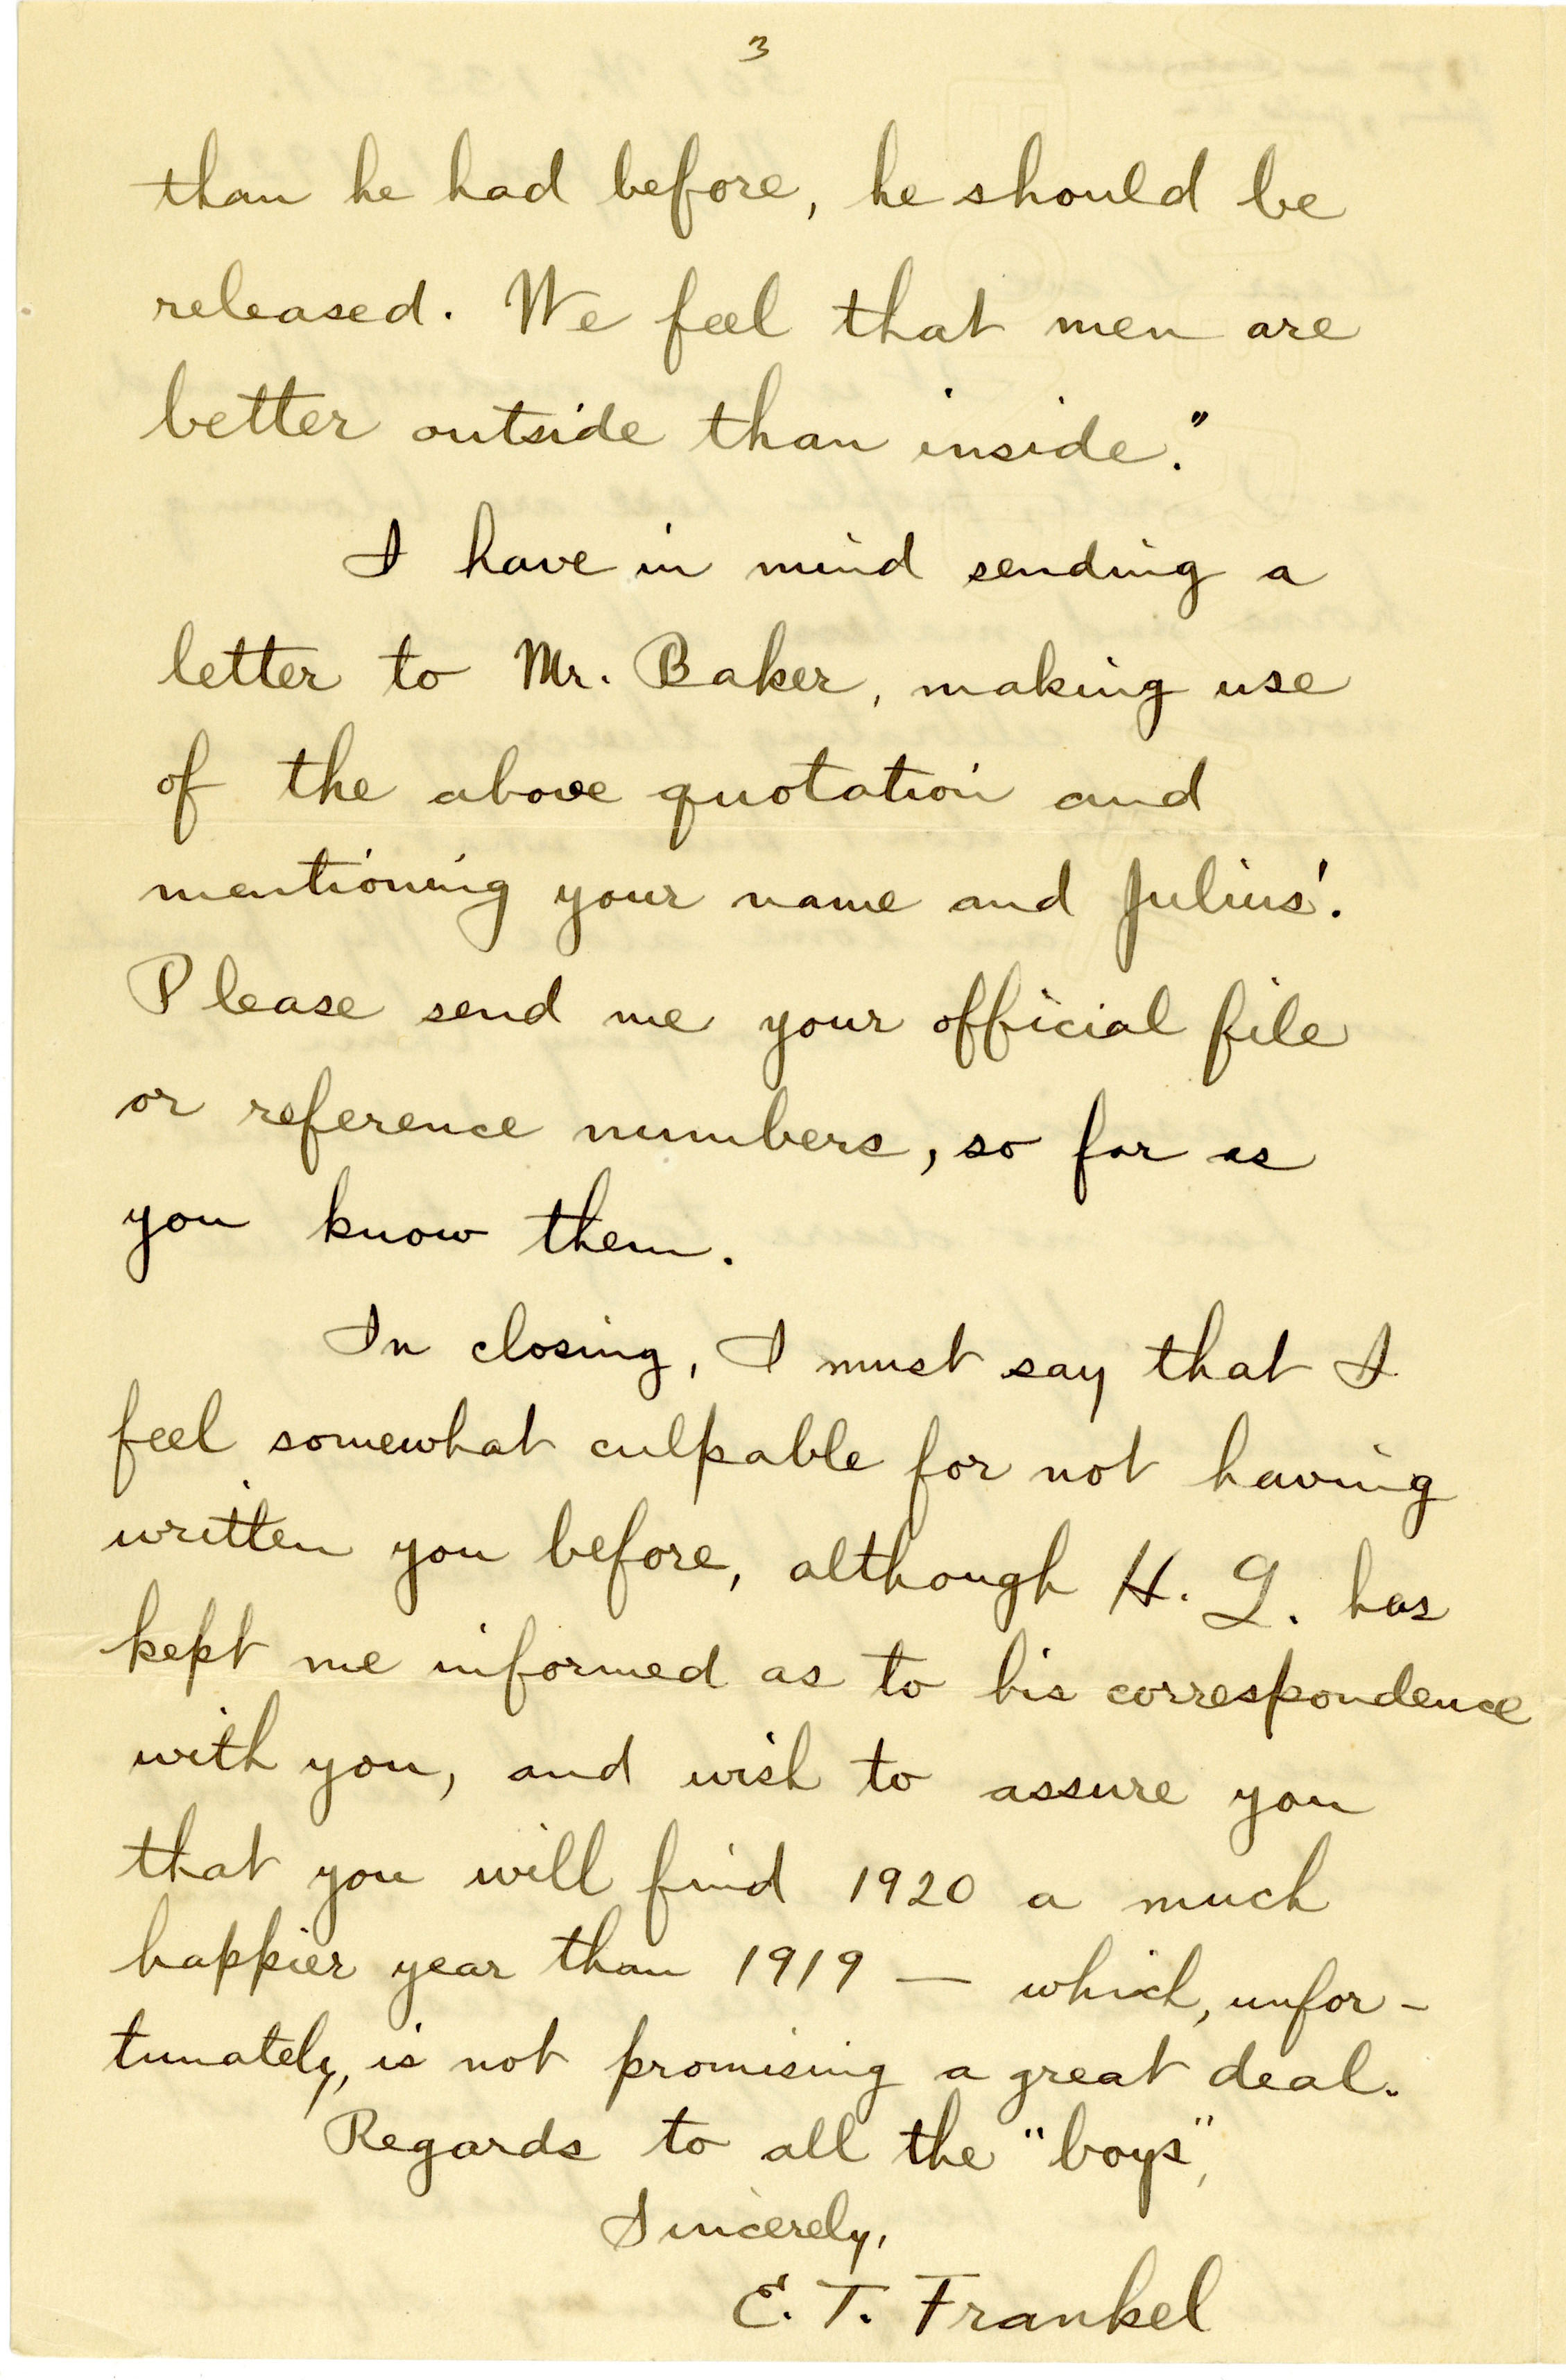 3
than he had before, he should be
released. We feel that men are
better outside than inside."
I have in mind sending a
letter to Mr. Baker, making use
of the above quotation and
mentioning your name and Julius'.
Please send me your official file
or reference numbers, so far as
you know them.
In closing, I must say that I
feel somewhat culpable for not having
written you before, although H. L. has
kept me informed as to his correspondence
with you, and wish to assure you
that you will find 1920 a much
happier year than 1919 — which, unfor-
tunately, is not promising a great deal.
Regards to all the "boys",
Sincerely,
E. T. Frankel